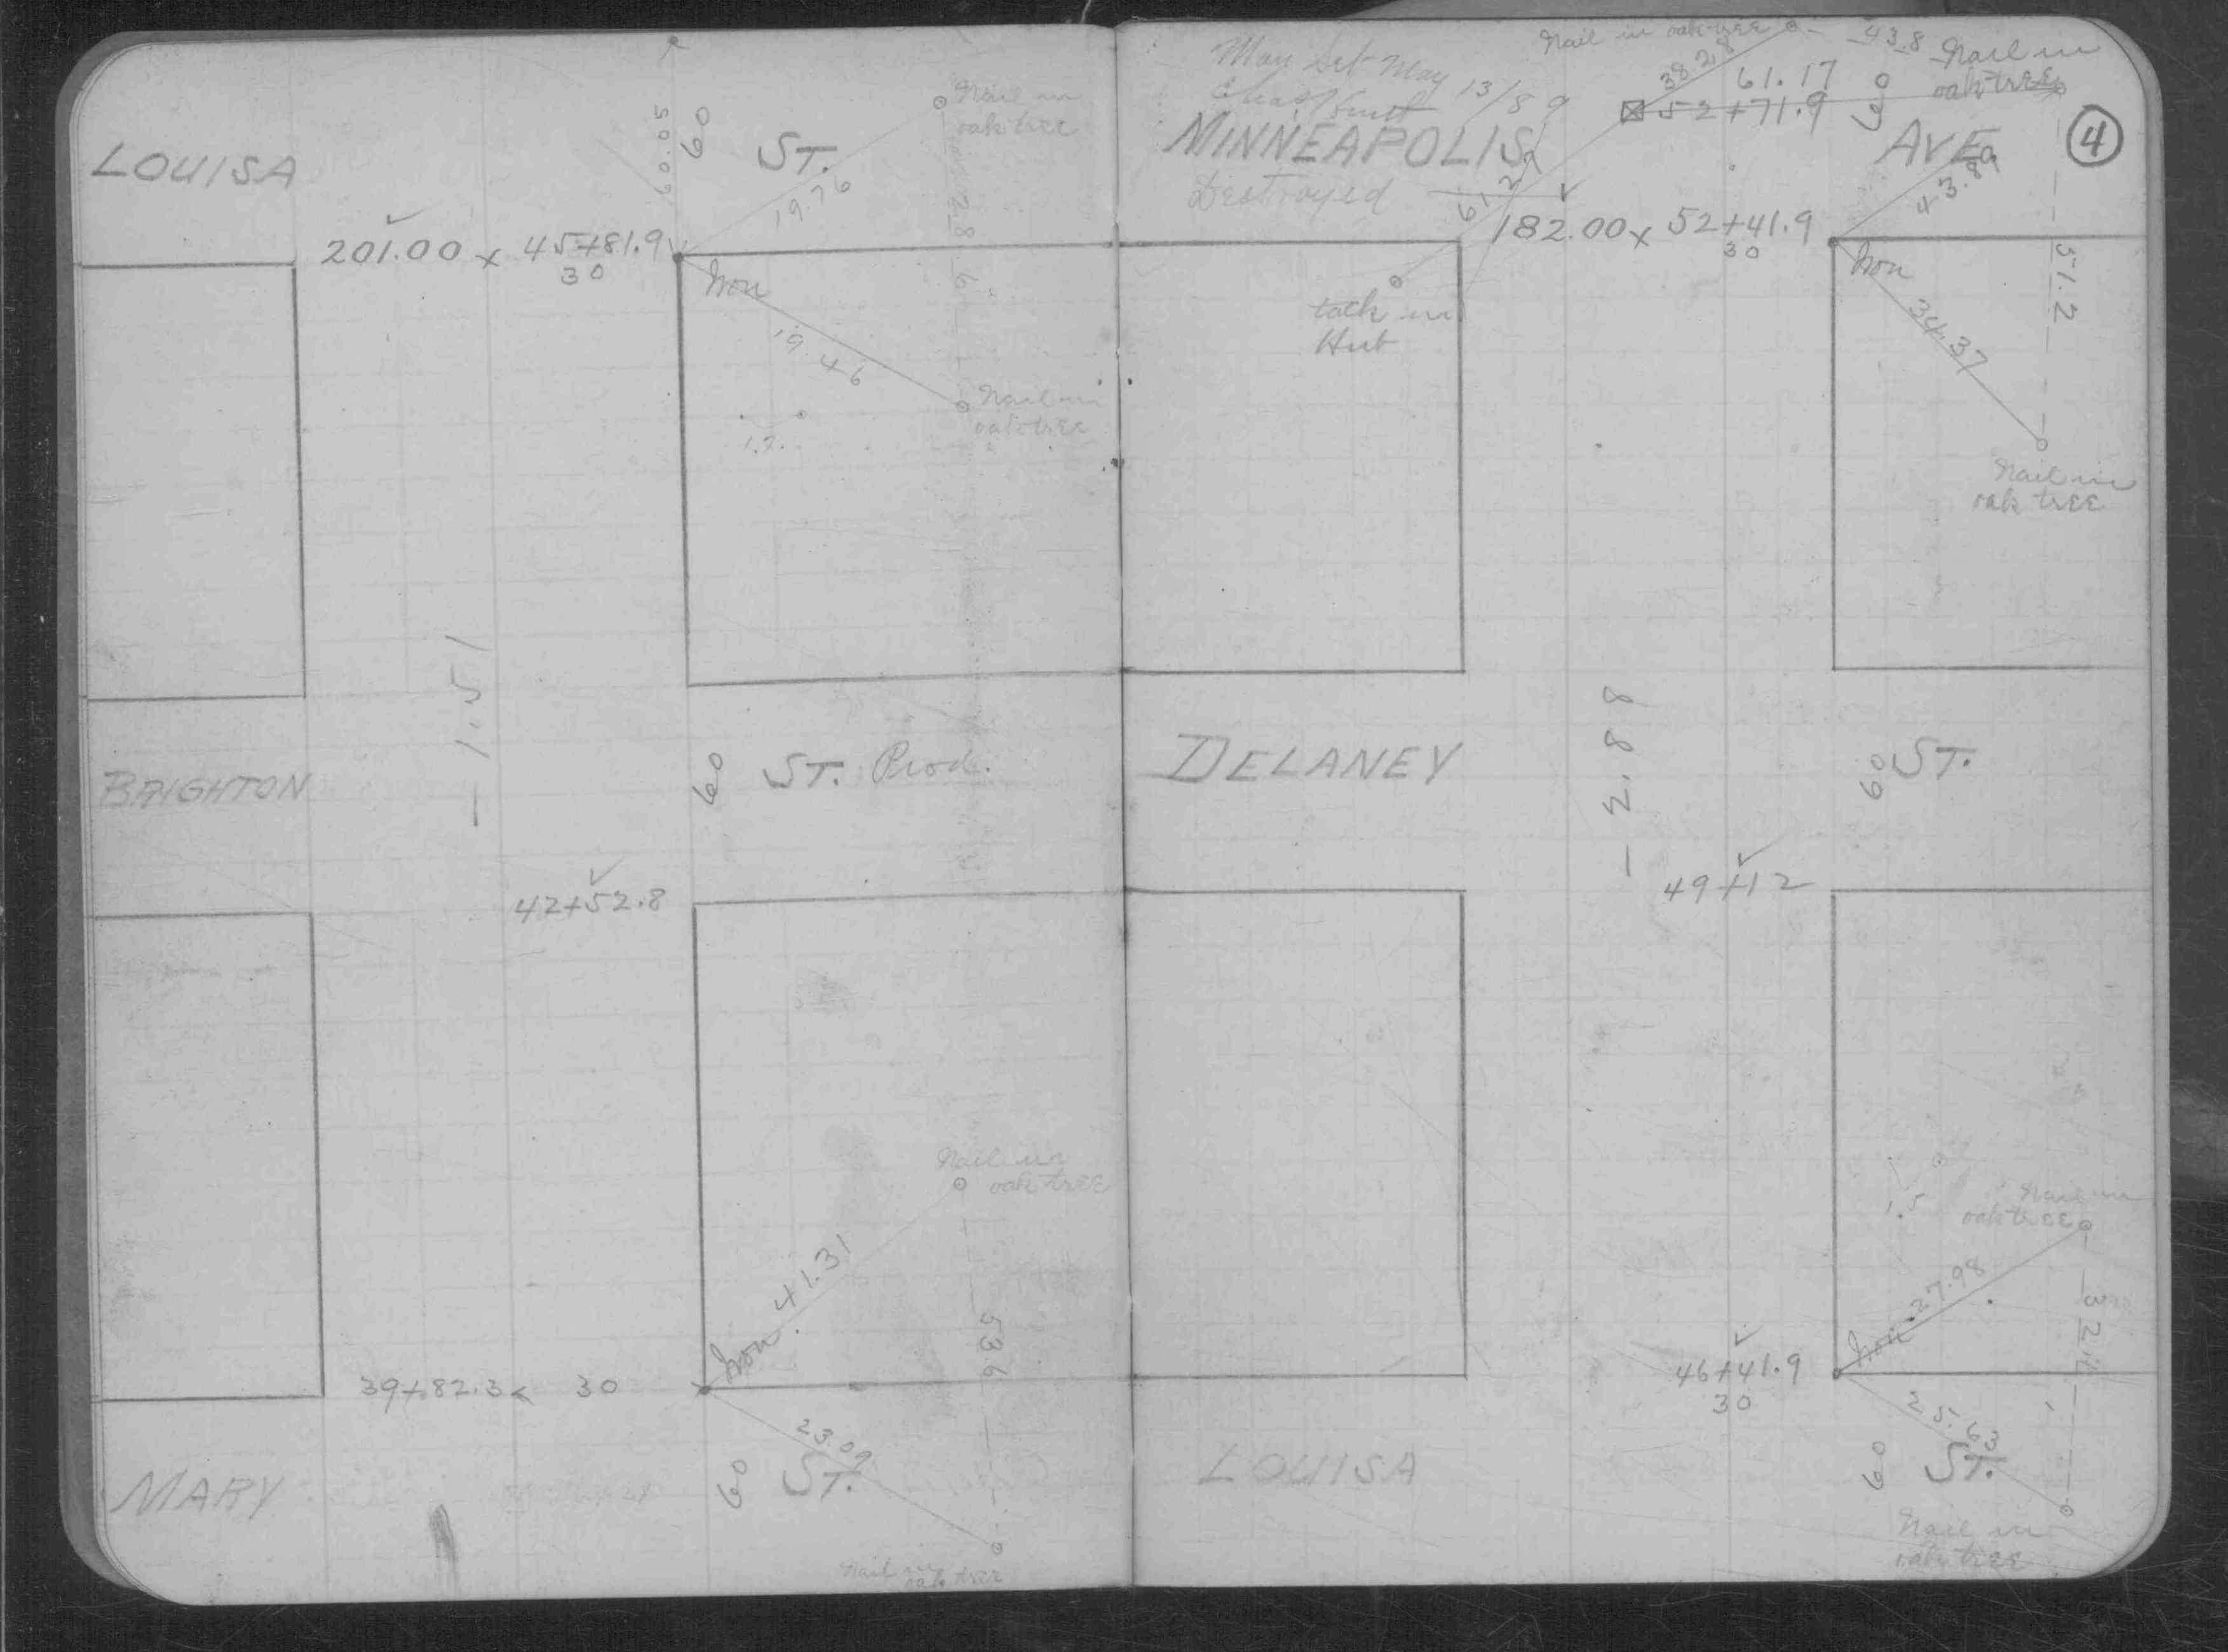 LOUISA
60.05
60
ST.
Nail in
oak tree
19.76
28.6
201.00 x 45+81.9
30
Iron
19.46
Nail in
oak tree
1.7.
- 1.51
BRIGHTON
60
ST. Prod.
42+52.8
Nail in
oak tree
41.31
Iron
53.6
39+82.3 x 30
23.09
MARY
60
ST.
Nail in
oak tree
Nail in oak tree
43.8
Nail in
oak tree
May 13/89
38.28
61.17
52+71.9
60
MINNEAPOLIS
AVE
4
Destroyed
61.27
43.89
182.00 x 52+41.9
30
Iron
51.2
tack in
Hub
34.37
Nail in
oak tree
DELANEY
- 2.88
60
ST.
49+12
1.5
Nail in
oak tree
27.98
Iron
46+41.9
30
25.63
LOUISA
60
ST.
Nail in
oak tree